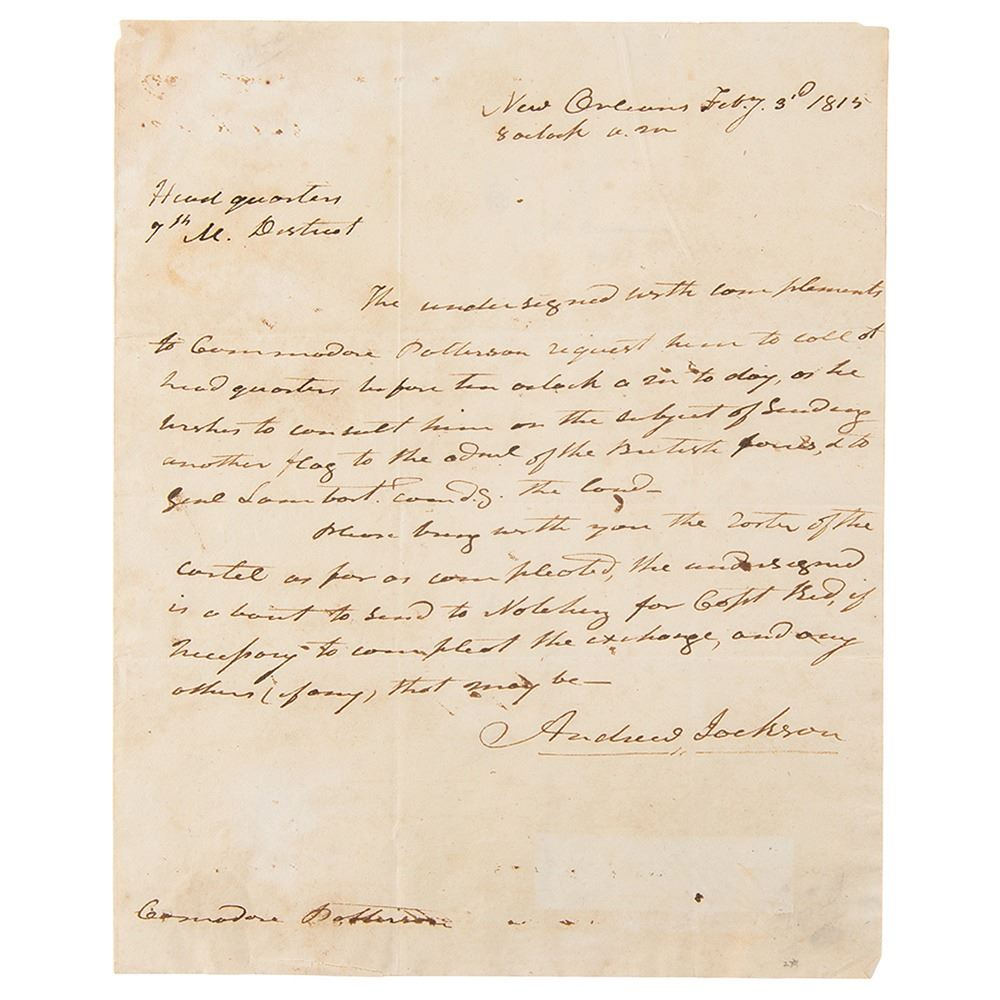 New Orleans Feby. 3d 1815
8 oclock a. m
Head quarters
7th M. District
The undersigned with complements
to Commodore Patterson request him to call at
head quarters before ten oclock a m to day, as he
wishes to consult him on the subject of sending
another flag to the adml of the British forces, & to
Genl Lambert. Comdg. the land—
please bring with you the roster of the
cartel as far as compleated, the undersigned
is about to send to Natchez for Capt Red, if
necessary to compleat the exchange, and any
others (if any) that may be—
Andrew Jackson
Commodore Patterson